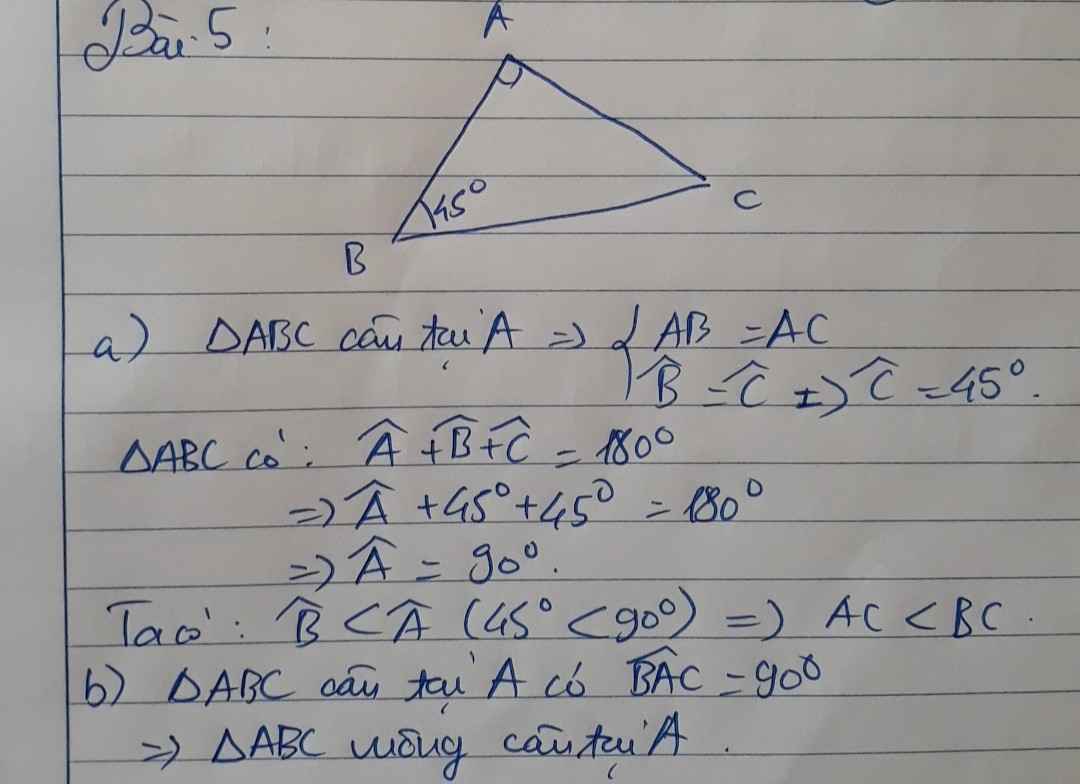 Bài 5 :
A
45°
C
B
a) ΔABC cân tại A => { AB = AC
B̂ = Ĉ => Ĉ = 45°.
ΔABC có : Â + B̂ + Ĉ = 180°
=> Â + 45° + 45° = 180°
=> Â = 90°.
Ta có : B̂ < Â (45° < 90°) => AC < BC .
b) ΔABC cân tại A có B̂AC = 90°
=> ΔABC vuông cân tại A .